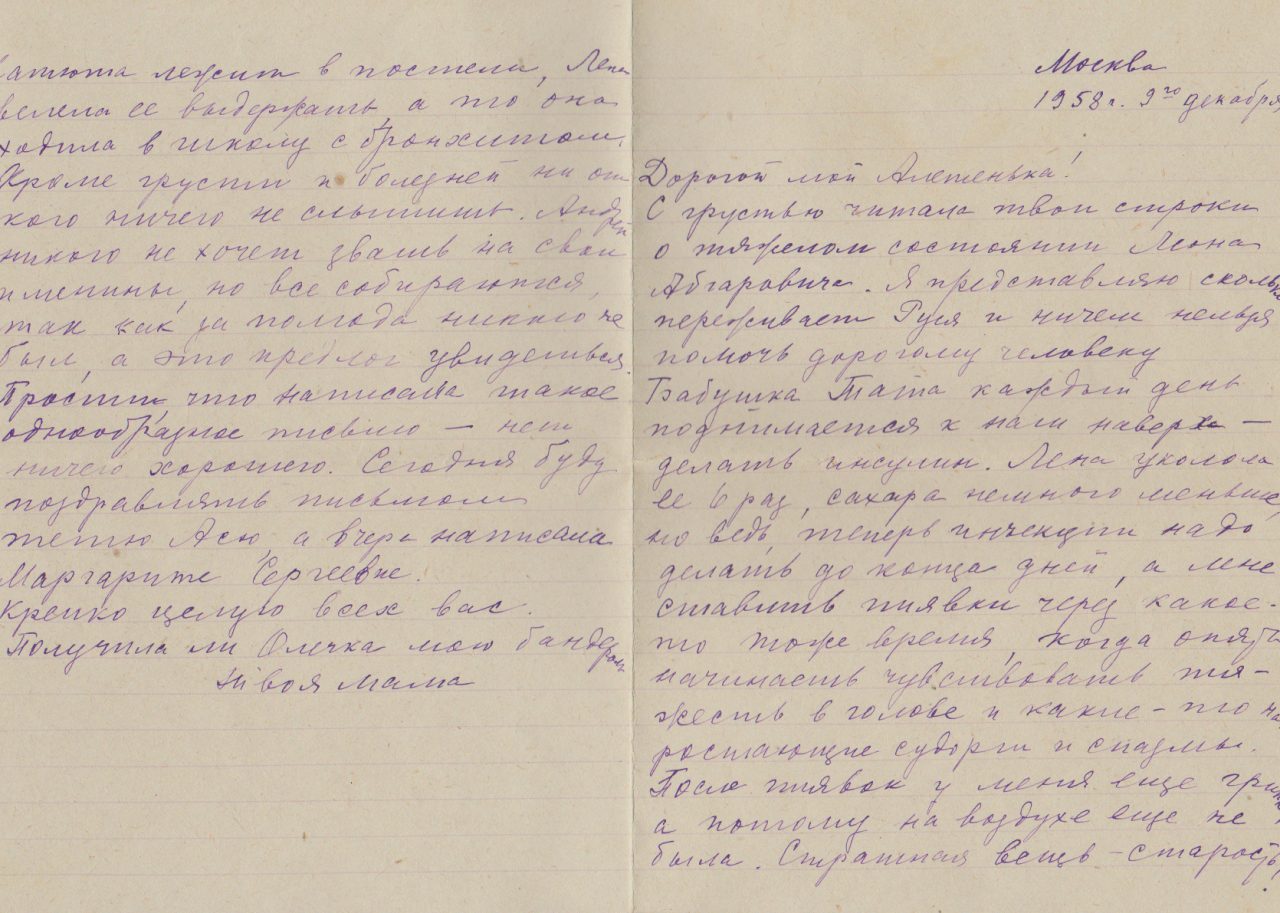 Москва
1958 г. 9го декабря
Дорогой мой Алешенька!
С грустью читала твои строки
о тяжелом состоянии Леона
Абгаровича. Я представляю сколько
переживает Гуля и ничем нельзя
помочь дорогому человеку
Бабушка Тата каждый день
поднимается к нам наверх —
делать инсулин. Лена уколола
ее 6 раз, сахара немного меньше,
но ведь, теперь инъекции надо
делать до конца дней, а мне
ставить пиявки через какое-
то тоже время, когда опять
начинаешь чувствовать тя-
жесть в голове и какие-то на
ростающие судорги и спазмы.
После пиявок у меня еще грипп
а потому на воздухе еще не
была. Страшная вещь - старость!
лежит в постели, Лена
велела ее выдержать, а то она
ходила в школу с бронхитом.
Кроме грусти и болезней ни от
кого ничего не слышишь. Андрей
никого не хочет звать на свои
именины, но все собираются,
так как за полгода никого не
был, а это предлог увидеться.
Прости, что написала такое
однообразное письмо — нет
ничего хорошего. Сегодня буду
поздравлять письмом
тетю Асю, а вчера написала
Маргарите Сергеевне.
Крепко целую всех вас.
Получила ли Олечка мою бандероль
Твоя мама